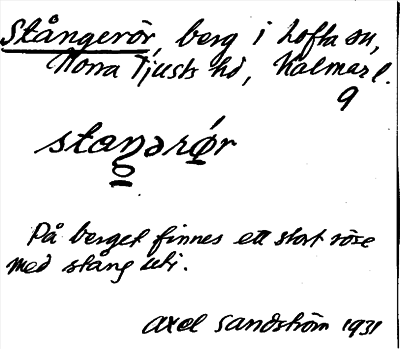 Stångerör, berg i Lofta sn,
Norra Tjusts hd, Kalmar l.
9
staŋərǿr
På berget finnes ett stort röse
med stång uti.
Axel Sandström 1931